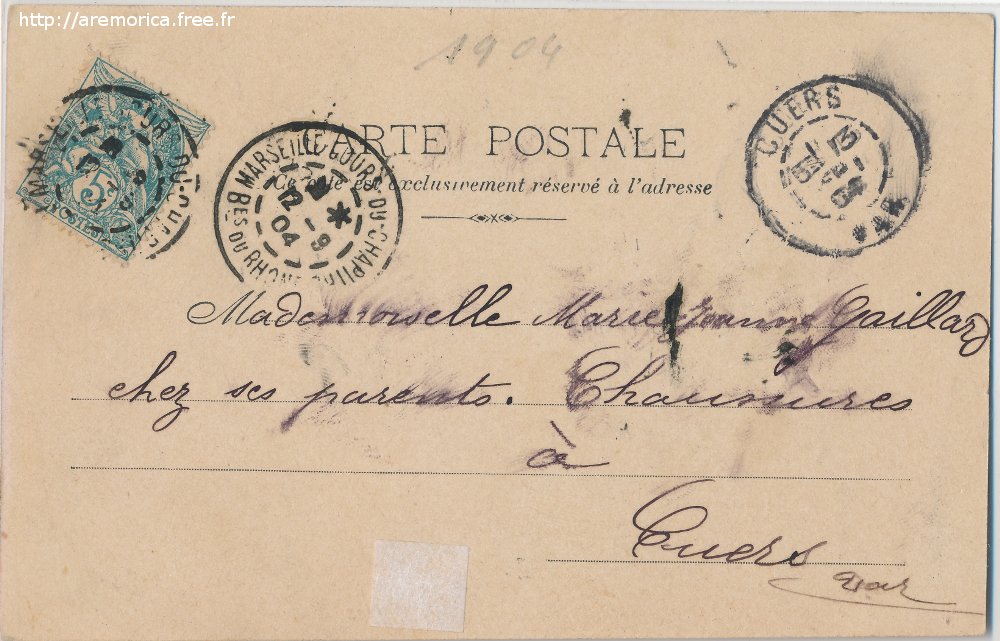 http://aremorica.free.fr
1904
CARTE POSTALE
Ce côté est exclusivement réservé à l'adresse
MARSEILLE COURS DU CHAPITRE
12 -9
04
BES DU RHONE
CUERS
13
VAR
5
Mademoiselle Marie Jeanne Gaillard
chez ses parents. Chaussures
à
Cuers
Var